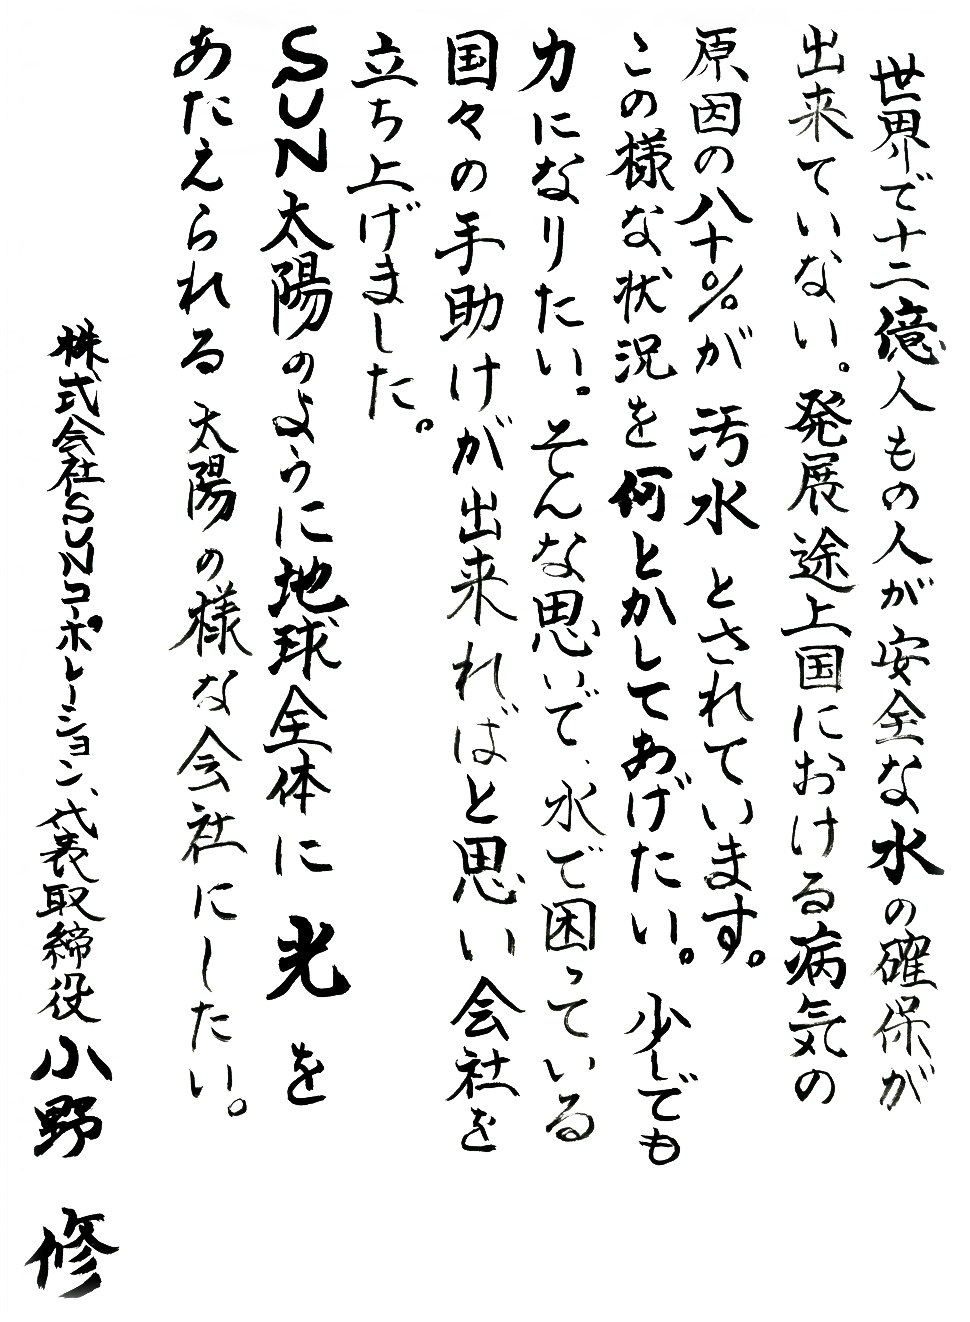 世界で十二億人もの人が安全な水の確保が
出来ていない。発展途上国における病気の
原因の八十%が汚水とされています。
この様な状況を何とかしてあげたい。少しでも
力になりたい。そんな思いで、水で困っている
国々の手助けが出来ればと思い会社を
立ち上げました。
SUN太陽のように地球全体に光を
あたえられる太陽の様な会社にしたい。
株式会社SUNコーポレーション、代表取締役小野 修